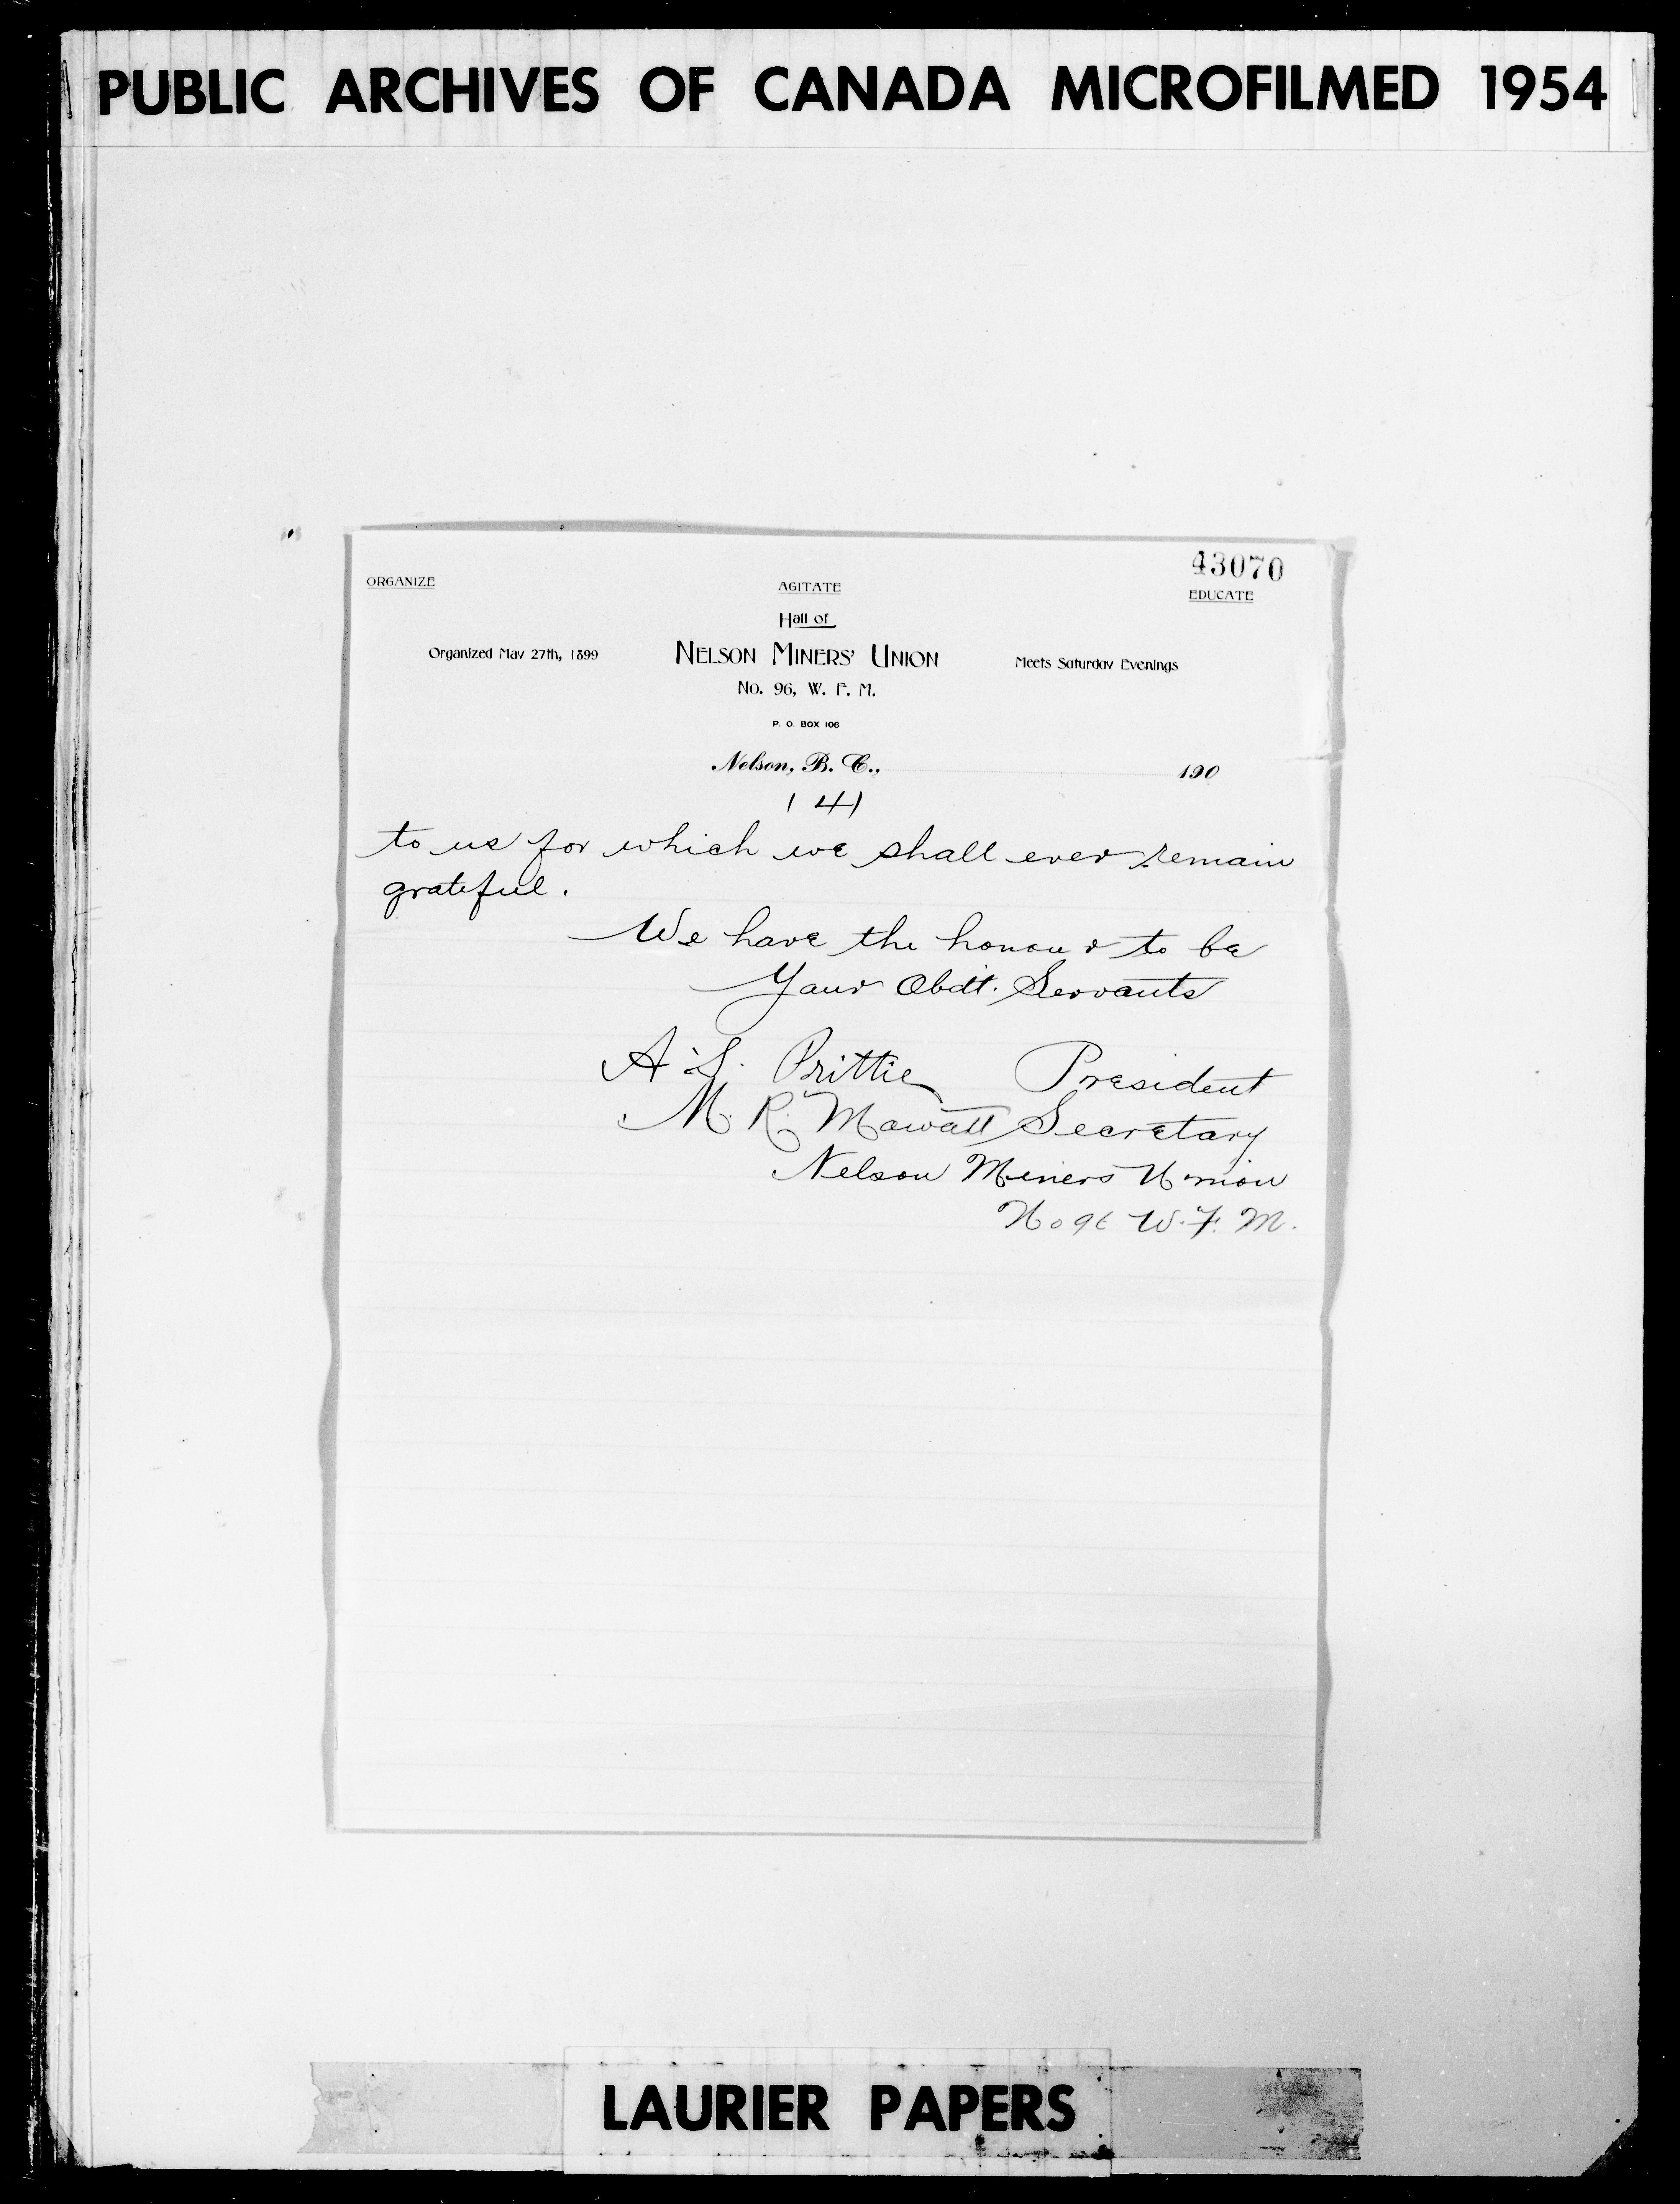 PUBLIC ARCHIVES OF CANADA MICROFILMED 1954
43070
ORGANIZE AGITATE EDUCATE
Hall of
Organized May 27th, 1899 NELSON MINERS' UNION Meets Saturday Evenings
No. 96, W. F. M.
P. O. BOX 106
Nelson, B. C., 190
(4)
to us for which we shall ever remain
grateful.
We have the honour to be
Your Obdt. Servants
A. S. Brittie President
M. R. Mowatt Secretary
Nelson Miners Union
No 96 W. F. M.
LAURIER PAPERS